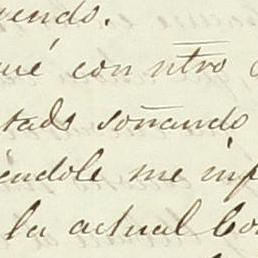 uendo.
ué con ntro
tads soñando
éndole me inf
la actual Co